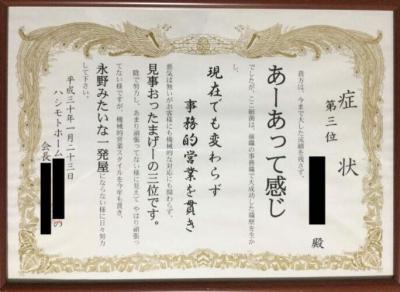 症状
第三位
殿
貴方は、今まで大した成績を残さず、
あーあって感じ
でしたが、ここ細渕は、前職の事務職で大成功した職歴を生かし、
現在でも変わらず
事務的営業を貫き
悪気は無いがお客様にも機械的な対応にも関わらず、
見事おったまげーの三位です。
陰で努力し、あまり頑張ってない様に見えて やはり頑張ってない様ですが、機械的営業スタイルを今年も貫き、
永野みたいな一発屋にならない様に日々努力して下さい。
平成三十年一月二十三日
ハシモトホーム
会長